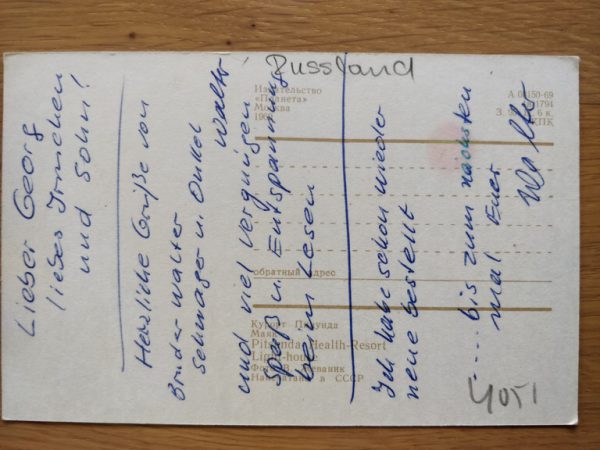 Lieber Georg
liebes Irmchen
und Sohn!
Herzliche Grüße von
Bruder Walter
Schwager u. Onkel
Walter
und viel Vergnügen
Spaß u. Entspannung
beim Lesen
Ich habe schon wieder
neue bestellt
.... bis zum nächsten
mal Euer
Walter
Russland
Издательство
«Планета»
Москва
А
150-69
1794
6 к.
обратный адрес
Курорт Пицунда
Маяк
Pitsunda Health-Resort
Light-house
Фото В.
в СССР
4051